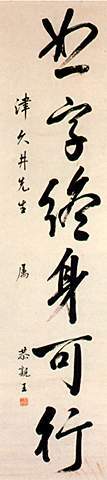 恕字終身可行
津久井先生 属
恭親王